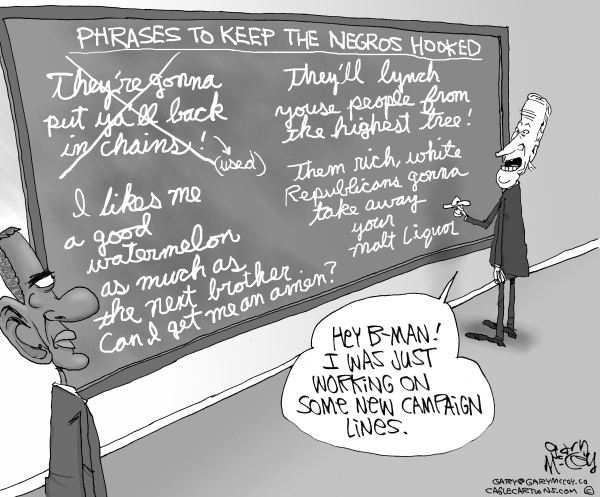 PHRASES TO KEEP THE NEGROS HOOKED
They're gonna
put ya'll back
in chains!
(used)
I likes me
a good
watermelon
as much as
the next brother
Can I get me an amen?
They'll lynch
youse people from
the highest tree!
Them rich, white
Republicans gonna
take away
your
malt Liquor
HEY B-MAN!
I WAS JUST
WORKING ON
SOME NEW CAMPAIGN
LINES.
GARY
McCOY
GARY@GARYMCCOY.ca
CAGLECARTOONS.COM ©